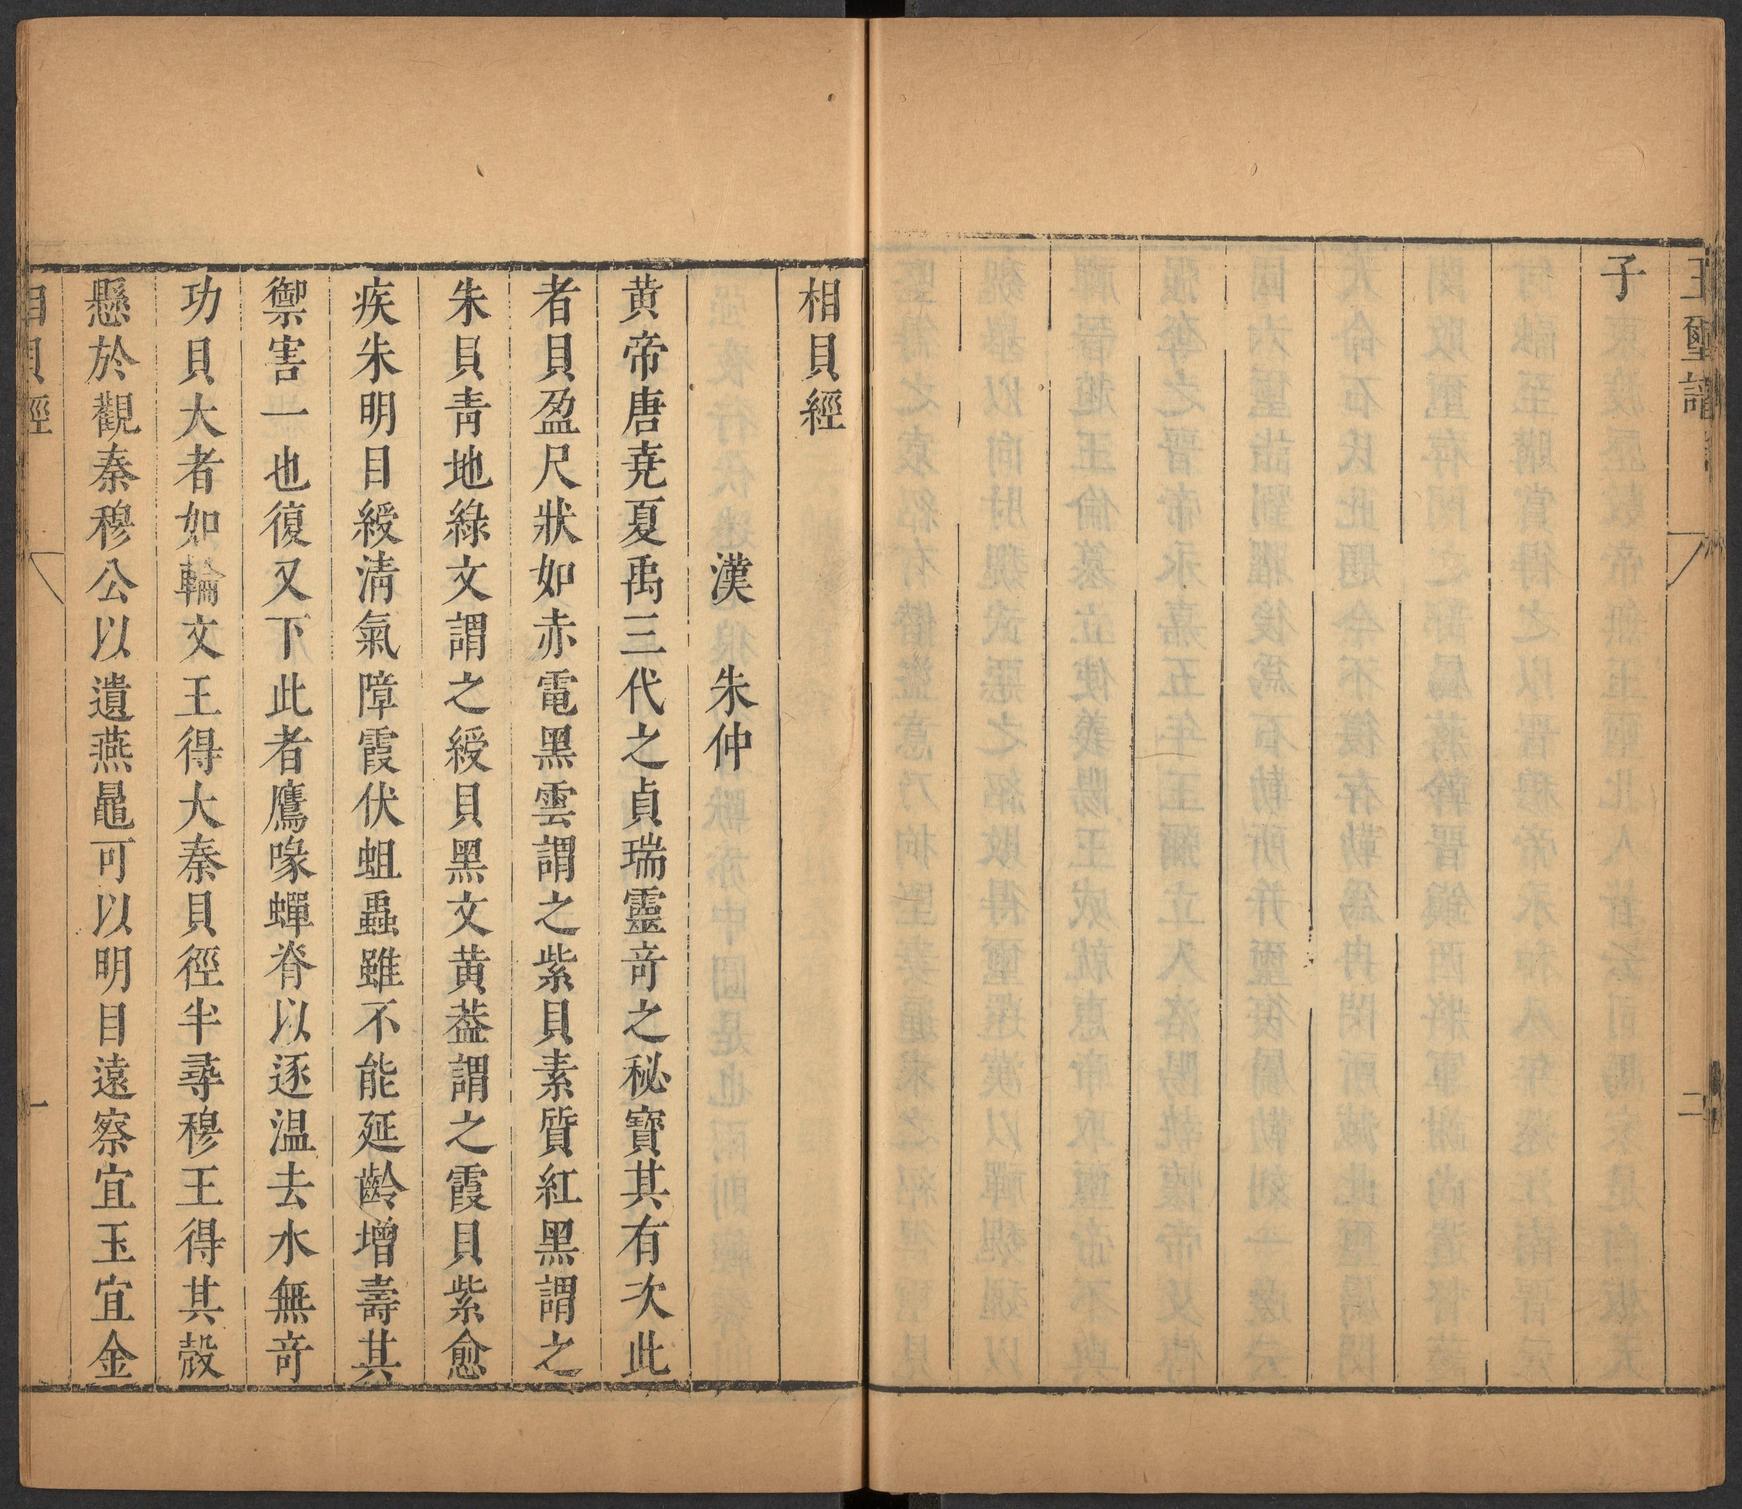 玉璽譜
二
子
相貝經
漢 朱仲
黃帝唐堯夏禹三代之貞瑞靈竒之秘寶其有次此
者貝盈尺狀如赤電黑雲謂之紫貝素質紅黑謂之
朱貝青地綠文謂之綬貝黑文黃葢謂之霞貝紫愈
疾朱明目綬淸氣障霞伏蛆蟲雖不能延齡增壽其
禦害一也復又下此者鷹喙蟬脊以逐温去水無竒
功貝大者如輪文王得大秦貝徑半尋穆王得其殼
懸於觀秦穆公以遺燕鼂可以明目遠察宜玉宜金
相貝經
一